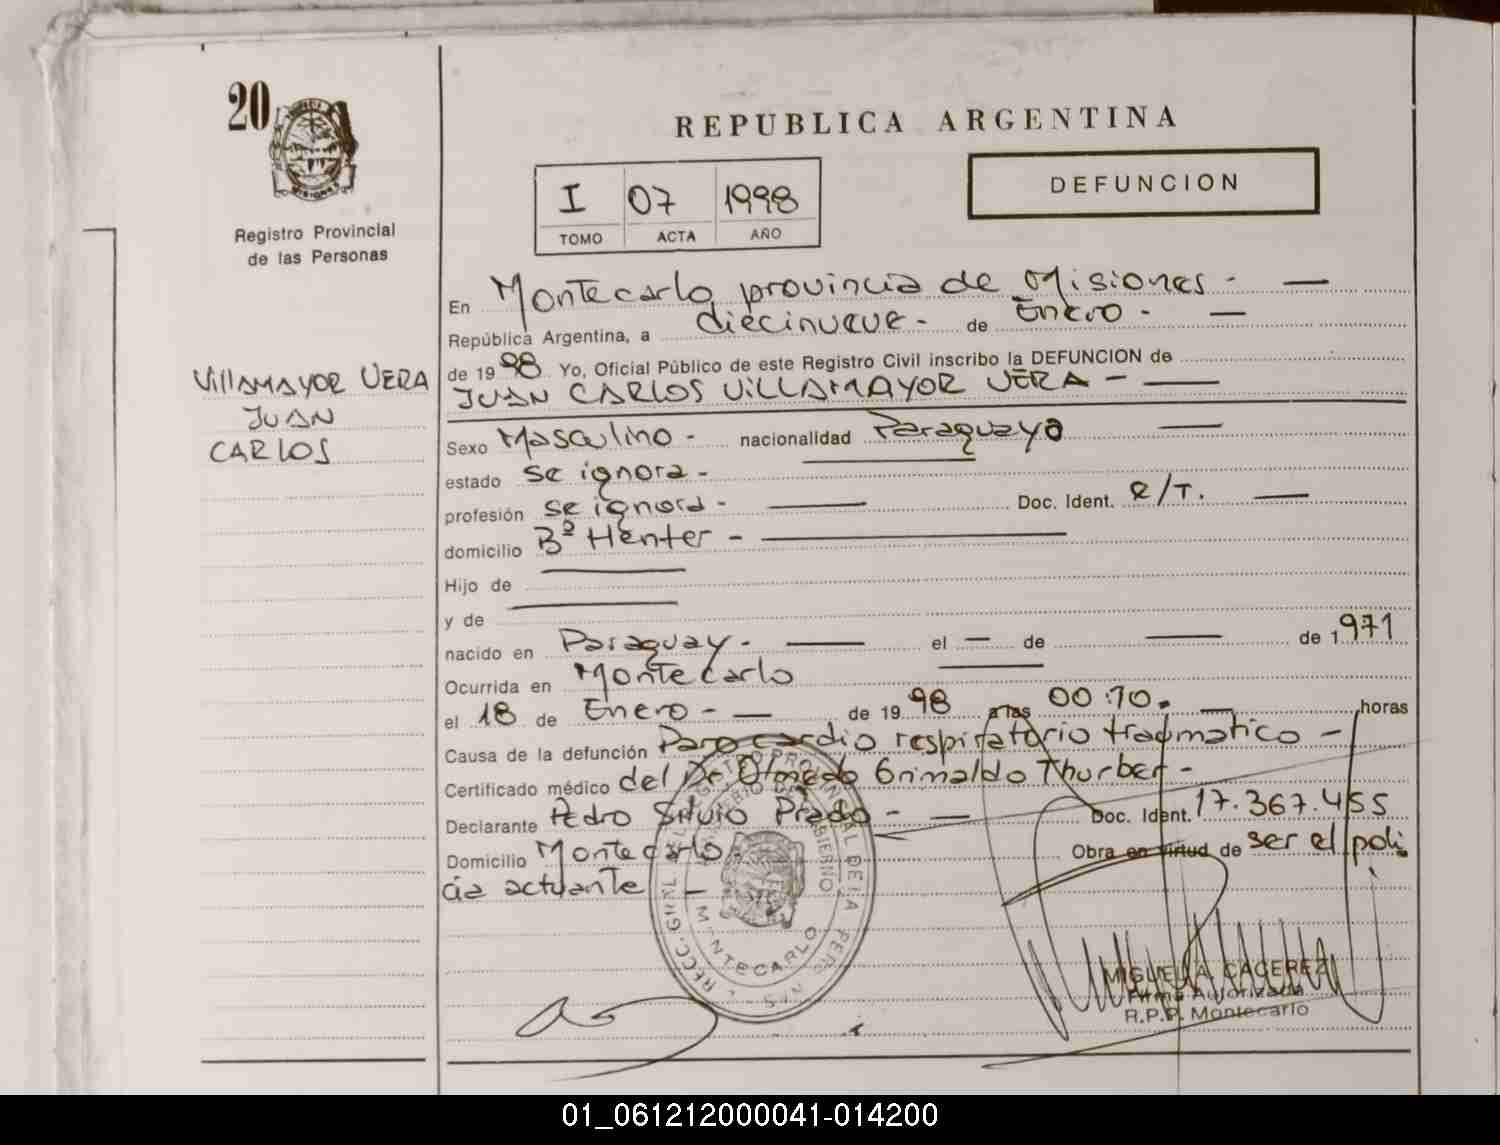 20
Registro Provincial
de las Personas
VILLAMAYOR VERA
JUAN
CARLOS
REPUBLICA ARGENTINA
I 07 1998
TOMO ACTA AÑO
DEFUNCION
En Montecarlo, provincia de Misiones - —
República Argentina, a diecinueve - de Enero - —
de 1998 Yo, Oficial Público de este Registro Civil inscribo la DEFUNCION de
JUAN CARLOS VILLAMAYOR VERA - —
Sexo Masculino - nacionalidad Paraguaya —
estado se ignora -
profesión se ignora - — Doc. Ident. R/T. —
domicilio Bº Henter - —
Hijo de —
y de —
nacido en Paraguay - — el — de — de 1971
Ocurrida en Montecarlo —
el 18 de Enero - — de 1998 a las 00:10. — horas
Causa de la defunción Paro cardio respiratorio traumatico -
Certificado médico del Dr. Olmedo Grimaldo Thurber -
Declarante Pedro Silvio Prado - — Doc. Ident. 17.367.455
Domicilio Montecarlo Obra en virtud de ser el poli
cia actuante -
MONTECARLO
MIGUEL A. CACEREZ
Firma Autorizada
R.P.P. Montecarlo
01_061212000041-014200